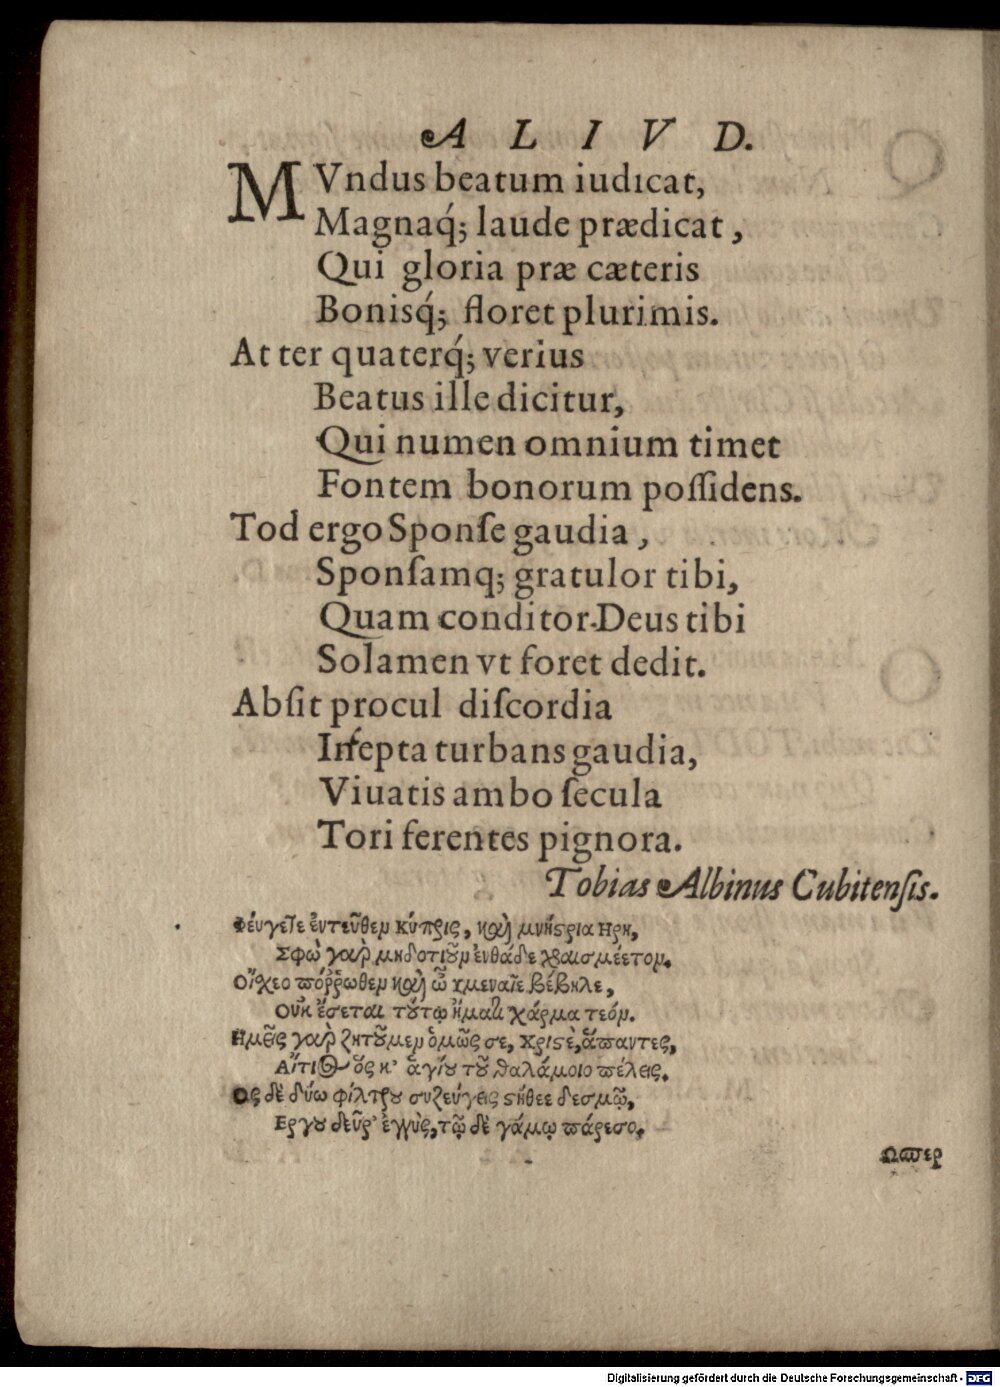 A L I V D.
MVndus beatum iudicat,
Magnaq́; laude prædicat,
Qui gloria præ cæteris
Bonisq́; floret plurimis.
At ter quaterq́; verius
Beatus ille dicitur,
Qui numen omnium timet
Fontem bonorum poſſidens.
Tod ergo Sponſe gaudia,
Sponſamq; gratulor tibi,
Quam conditor Deus tibi
Solamen vt foret dedit.
Abſit procul diſcordia
Inſepta turbans gaudia,
Viuatis ambo ſecula
Tori ferentes pignora.
Tobias Albinus Cubitenſis.
Φεύγετε ἐντεῦθεν Κύπρις, καὶ μνήϛρια Ηρη,
Σφὼ γαὰρ μηδοτιȣ͂ν ἐνθάδε
Οἴχεο πόῤῥωθεν καὶ ὦ υμεναῖε βέβηλε,
Οὐκ ἔσεται τȣ́τῳ ἤματι χάρμα τεόν.
Ημεῖς γαὰρ ζητȣ͂μεν ὁμῶς σε, χριϛὲ, ἅπαντες,
Αἴτιος ὅς κ' ἁγίȣ τȣ͂ θαλάμοιο πέλεις.
Ος δὲ δύω φίλτρȣ συζεύγεις δεσμῷ,
Εργȣ δεῦρ' ἐγγὺς, τῷ δὲ γάμῳ πάρεσο.
Ωσπερ
Digitalisierung gefördert durch die Deutsche Forschungsgemeinschaft - DFG